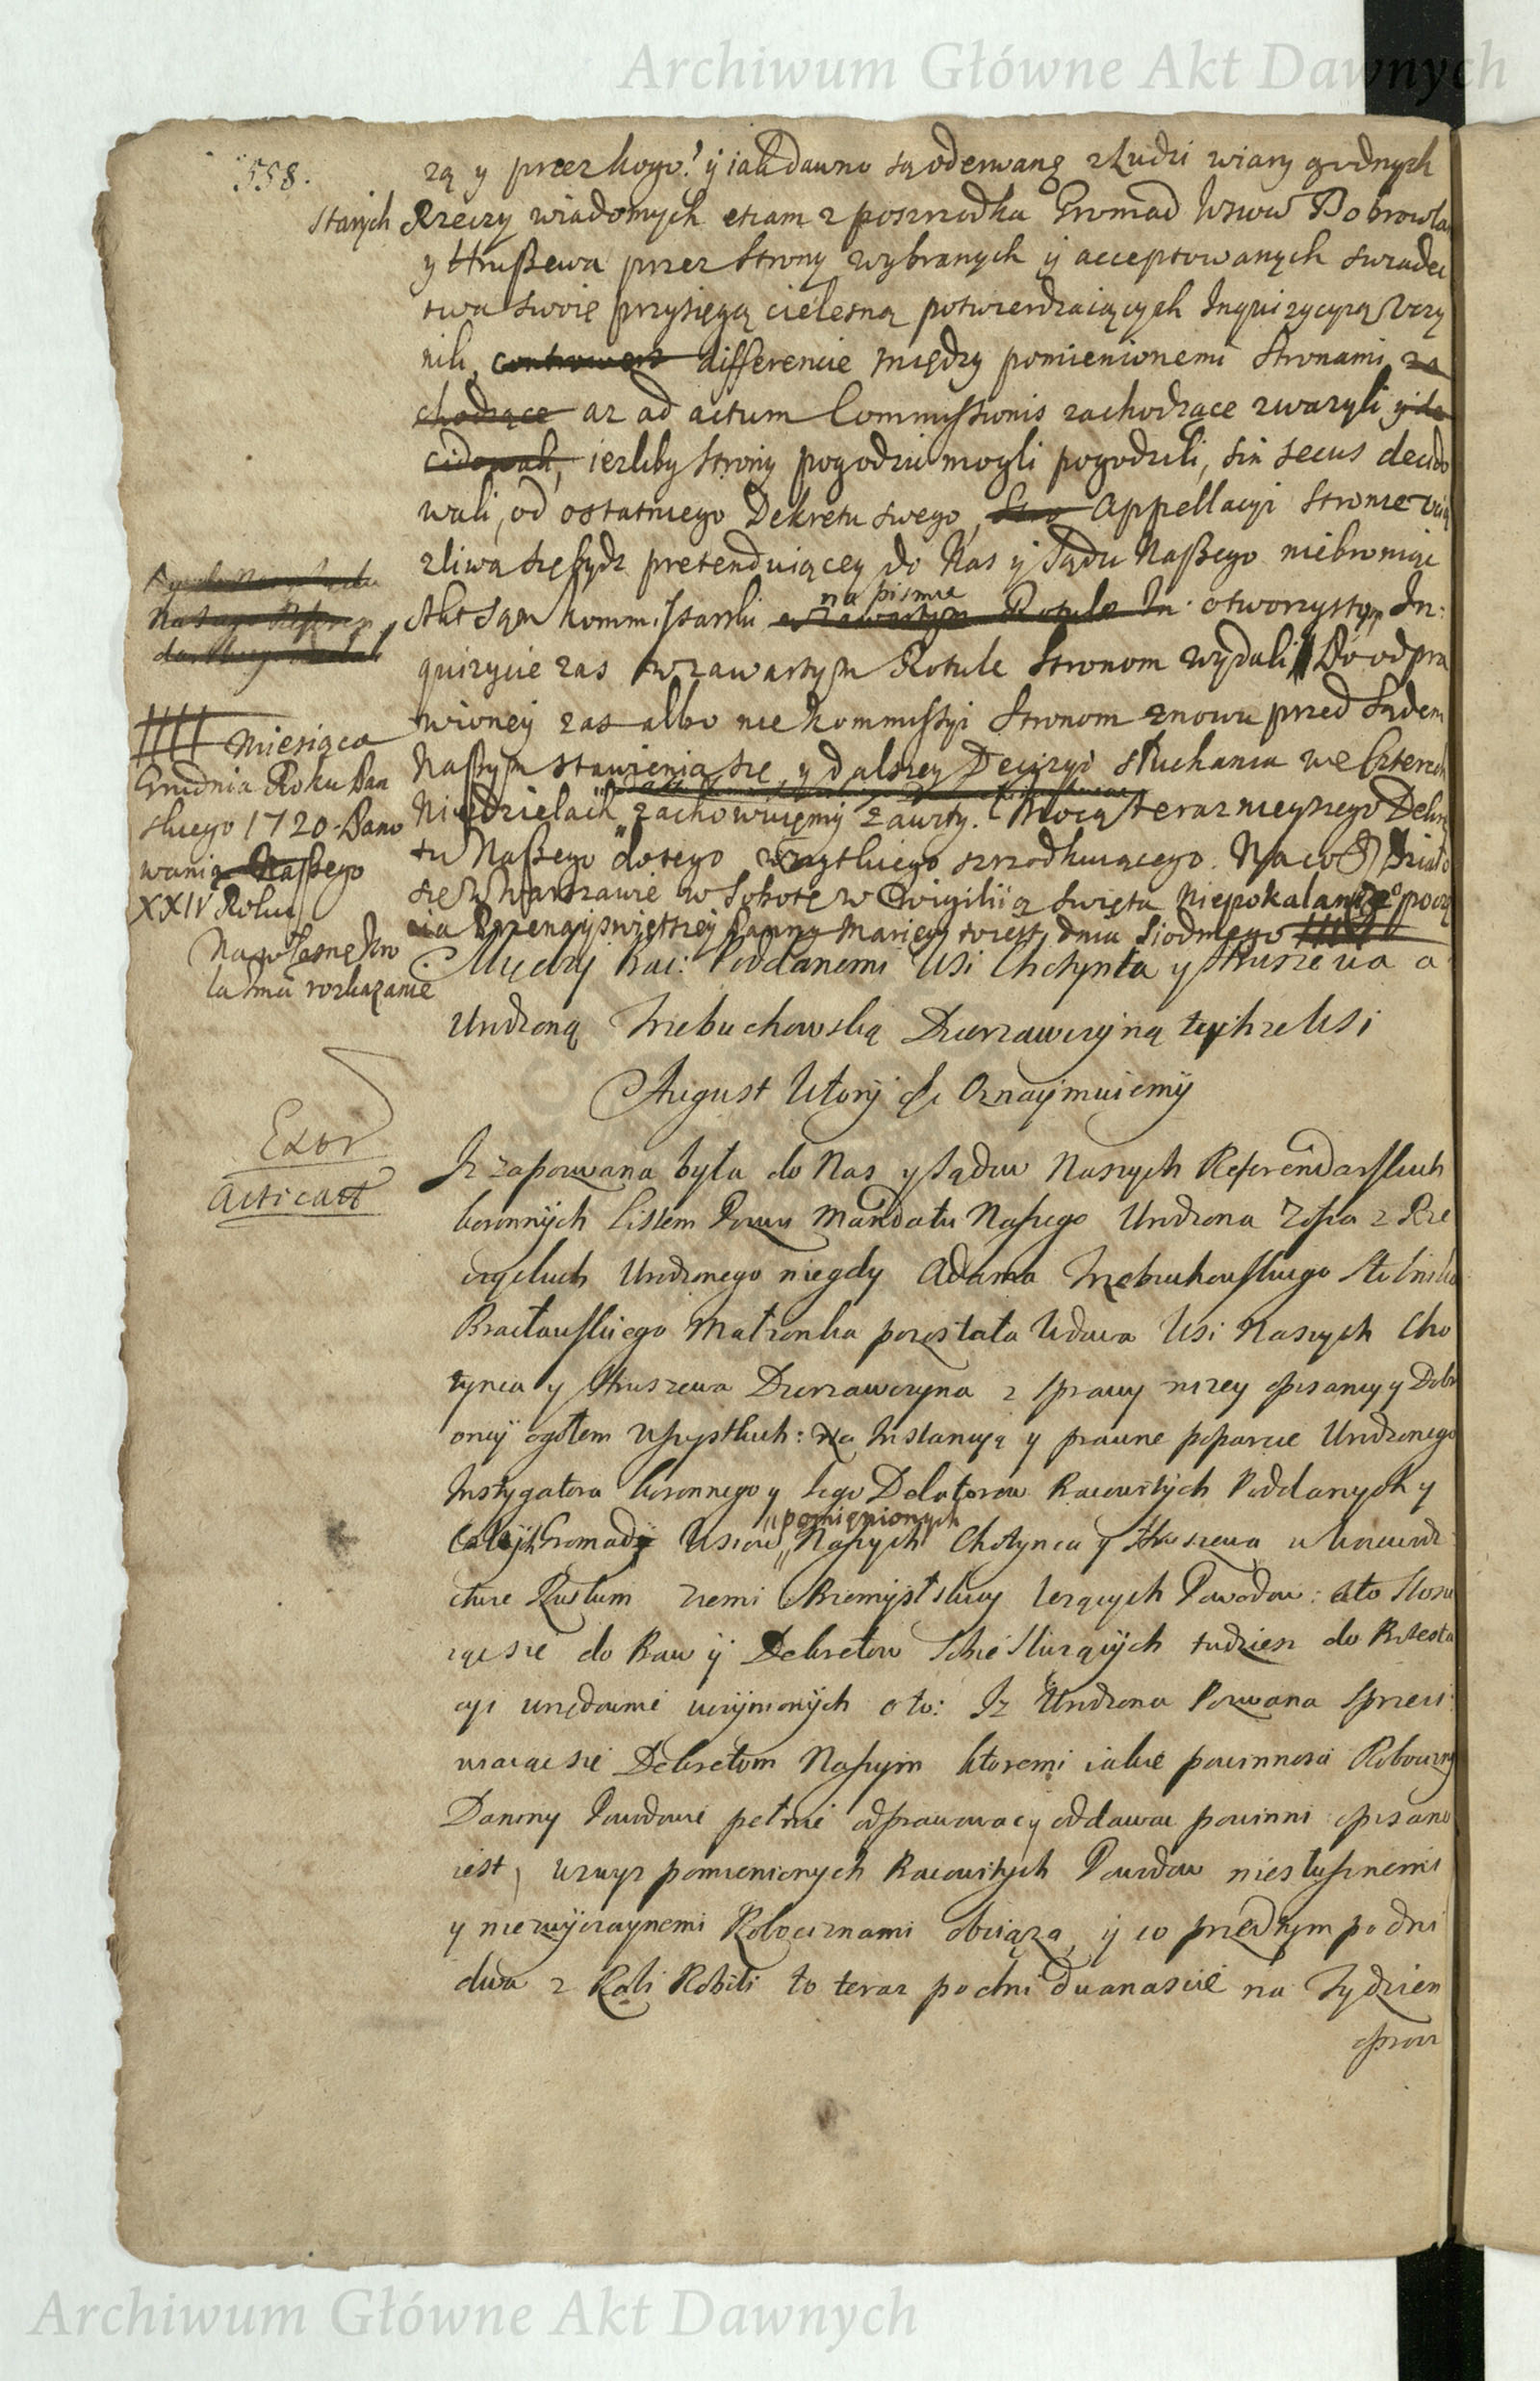 Archiwum Główne Akt Dawnych
558.
zą y przez kogo? ÿ iak dawno są oderwane z Ludzi wiary godnych
starych Rzeczy wiadomych etiam z poszrzodku Gromad Wsiow Dobrowla
y Hrußewa przez Strony wybranych ÿ acceptowanych swiadec
twa swoie przysięgą cielesną potwierdzaiących Inquizycyą Uczy
nili, controwers differencie między pomienionemi Stronami za
chodzące az ad actum Commyssionis zachodzące zwazyli y de
cidowali, iezliby Strony pogodzic mogli pogodzili, sin secus decido
wali, od ostatniego Dekretu swego, Appellacyi Stronie Ucią
zliwą się bydz pretenduiącey do Nas ÿ Sądu Naßego niebroniąc
na pismie
Akt Sąm kommissarski w zawartym Rotule In otworzystym In:
quizycie zas w zawartym Rotule Stronom wydali Po odpra
wioney zas albo nie kommissyi Stronom znowu przed Sądem
Naßym stawienia się y dalszey Decizyi słuchania we Czterech
Niedzielach zachowuięmy zawity. Mocą teraznieyszego Dekre
tu Naßego do tego wszytkiego szrzodkuiącego. Na co Działo
się w Warszawie w Sobotę w Wigiliią swięta Niepokalanego poczę
cia Przenayswiętszey Panny Maryey to iest dnia Siodmego
miesiąca
Grudnia Roku Pan
skiego 1720. Pano
wania Naßego
XXIV Roku
Na własne Kro
la Jmci rozkazanie
Między Prac: Poddanemi Wsi Chotynca y Hruszewa a
Urodzoną Trzebuchowską Dzierzawczyną tychze Wsi
August Wtory &c Oznaÿmuiemÿ
Exor
acticat
Iz zapozwana była do Nas y Sądow Naszych Referendarskich
koronnÿch Listem Pozwu Mandatu Naszego Urodzona Zofia z Rze
czyckich Urodzonego niegdy Adama Trzebuchowskiego Stolnika
Bracławskiego Małzonka pozostała Wdowa Wsi Naszych Cho
tynca y Hruszewa Dzierzawczyna z sprawy nizey opisaney y Dobr
oneÿ ogołem wszystkich: Na Instancyą y prawne poparcie Urodzonego
Instygatora koronnego y Iego Delatorow Pracowitych Poddanych y
pomięnionych
Całÿch Gromad Wsiow Naszych Chotynca y Hruszewa w Woiewodz
ctwie Ruskim ziemi Przemÿslskiey lezących Powodow: a to Stosu
iąc się do Praw ÿ Dekretow Sobie Sluzącÿch tudziesz do Protesta
cyi urzędownie uczÿnionÿch o to: Iz Urodzona Pozwana sprzeci
wiaiąc się Dekretom Naszym ktoremi iakie powinnosci Robocizny
Daniny Powodowie pełnic odprawowac y oddawac powinni opisano
iest, wzwyz pomienionych Pracowitych Powodow niesłusznemi
y niezwÿczaynemi Robociznami obciąza, ÿ co przedtym po dni
dwa z Roli Robili to teraz po dni dwanascie na Tydzien
oprocz
Archiwum Główne Akt Dawnych